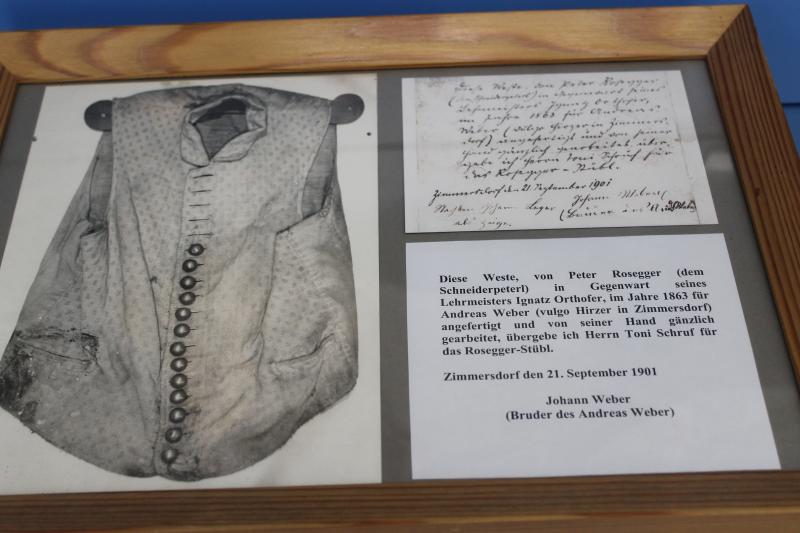 Diese Weste, von Peter Rosegger
(dem Schneiderpeterl) in Gegenwart seines
Lehrmeisters Ignatz Orthofer,
im Jahre 1863 für Andreas
Weber (vulgo Hirzer in Zimmers-
dorf) angefertigt und von seiner
Hand gänzlich gearbeitet, über-
gebe ich Herrn Toni Schruf für
das Rosegger-Stübl.
Zimmersdorf den 21. September 1901
Johann Weber
als Zeuge.
Diese Weste, von Peter Rosegger (dem
Schneiderpeterl) in Gegenwart seines
Lehrmeisters Ignatz Orthofer, im Jahre 1863 für
Andreas Weber (vulgo Hirzer in Zimmersdorf)
angefertigt und von seiner Hand gänzlich
gearbeitet, übergebe ich Herrn Toni Schruf für
das Rosegger-Stübl.
Zimmersdorf den 21. September 1901
Johann Weber
(Bruder des Andreas Weber)